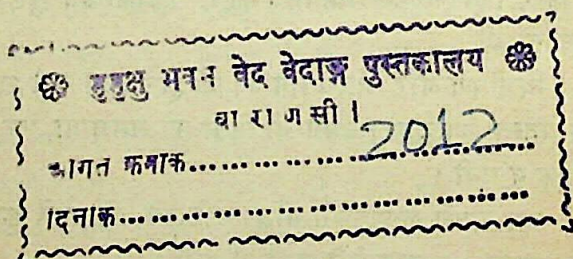 ❀ मुमुक्षु भवन वेद वेदाङ्ग पुस्तकालय ❀
वा रा ण सी ।
आगत क्रमांक........................2012
दिनांक........................................